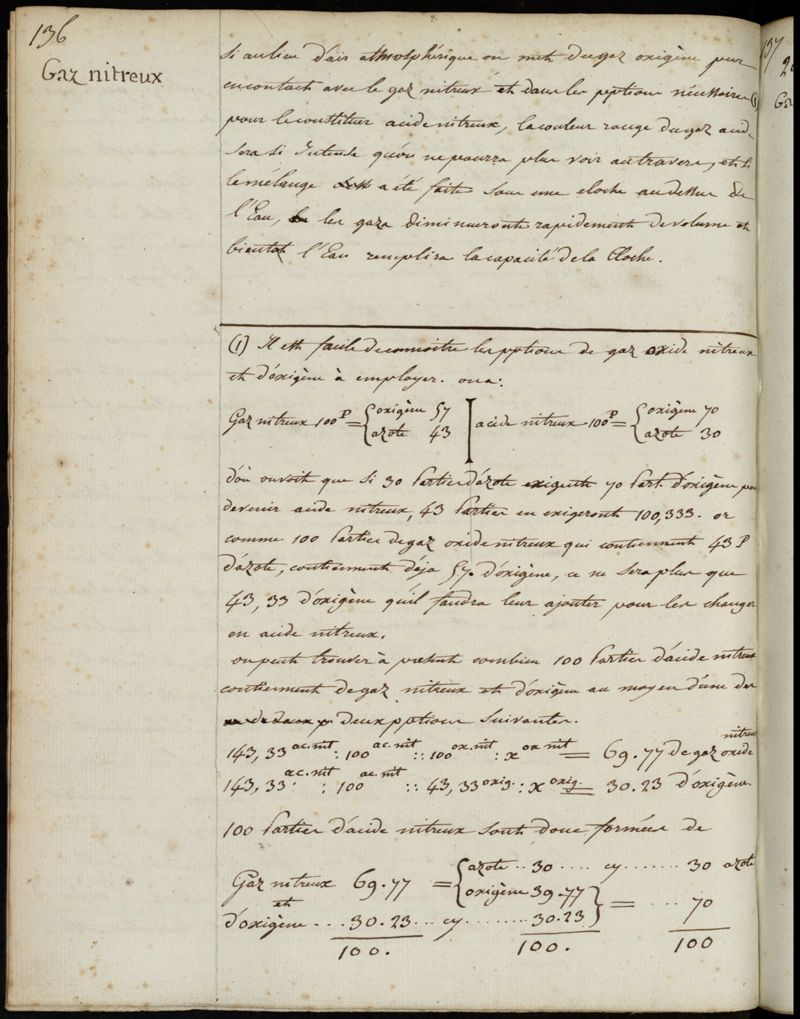 136
Gaz nitreux
Si au lieu d'air athmosphérique on met du gaz oxigène pur
en contact avec le gaz nitreux et dans les pptions nécessaires (1)
pour le constituer acide nitreux, la couleur rouge du gaz acide
sera si Intense qu'on ne pourra plus voir au travers, et si
le mélange a été fait sous une cloche au dessus de
l'Eau, les gazs diminueront rapidement de volume et
bientot l'Eau remplira la capacité de la Cloche.
(1) Il est facile de connoitre les pptions de gaz oxide nitreux
et d'oxigène à employer. on a:
Gaz nitreux 100P = { oxigène 57 | acide nitreux 100P = { oxigène 70
azote 43 azote 30
d'où on voit que si 30 Parties d'azote exigent 70 Part. d'oxigène pour
devenir acide nitreux, 43 Parties en exigeront 100,333. or
comme 100 Parties de gaz oxide nitreux qui contiennent 43 P
d'azote, contiennent déja 57. d'oxigène, ce ne sera plus que
43,33 d'oxigène qu'il faudra leur ajouter pour les changer
en acide nitreux.
on peut trouver à présent combien 100 Parties d'acide nitreux
contiennent de gaz nitreux et d'oxigène au moyen d'une des
deux pptions suivantes.
143,33 ac. nit : 100 ac. nit :: 100 ox. nit : x ox nit = 69.77 de gaz oxide nitreux
143,33 ac. nit : 100 ac nit :: 43,33 oxig. : x oxig. = 30.23 d'oxigène.
100 Parties d'acide nitreux sont donc formées de
Gaz nitreux 69.77 = { azote .. 30 .... cy ....... 30 azote
et oxigène 39.77 } = .... 70
d'oxigène .... 30.23 ... cy ........ 30.23
100. 100. 100
137